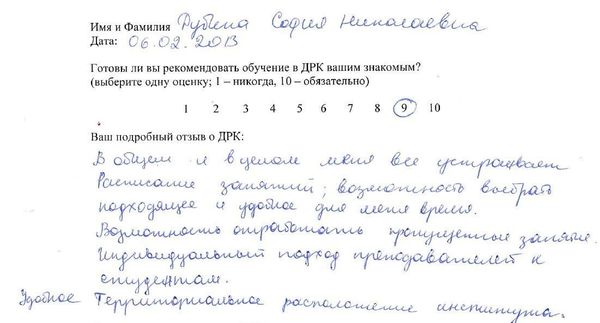 Имя и Фамилия Рубина София Николаевна
Дата: 06.02.2013
Готовы ли вы рекомендовать обучение в ДРК вашим знакомым?
(выберите одну оценку; 1 – никогда, 10 – обязательно)
1 2 3 4 5 6 7 8 9 10
Ваш подробный отзыв о ДРК:
В общем и в целом меня все устраивает
Расписание занятий; возможность выбрать
подходящее и удобное для меня время.
Возможность отработать пропущенные занятия.
Индивидуальный подход преподавателей к
студентам.
Удобное Территориальное расположение института.